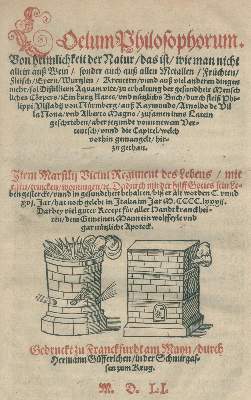 Coelum Philosophorum.
Von heimlichkeit der Natur / das ist / wie man nicht
allein auß Wein / sonder auch auß allen Metallen / Früchten /
Fleisch / Eyer / Wurtzlen / Kreuttern / vnnd viel anderen dingen
mehr / sol Distillieren Aquam vite / zu erhaltung der gesundheit Mensch
liches Cörpers / Ein kurtz klares / vnd nützlichs Buch / durch fleiß Phi-
lippe Vlstadij von Nürmberg / auß Raymundo / Arnoldo de Vil
la Noua / vnd Alberto Magno / zusamen inns Latein
geschrieben / aber yezunde von newem Ver-
teutscht / vnnd die Capitel / welch
vorhin gemangelt / hin-
zu gethan.
Item Marsilij Ficini Regiment des Lebens / mit
essen / trincken / wonungen / ꝛc. Dardurch mit der hilff Gottes sein Le-
ben gestreckt / vnnd in gesundtheit behalten / biß er alt worden C. vnnd
xvj. Jar / hat noch gelebt in Italia im Jar M. CCCC. lxxxvij.
Darbey viel guter Recept für aller Handt kranckhei-
ten / dem Gemeinen Mann ein wolfeyle vnd
gar nützliche Apoteck.
Gedruckt zu Franckfurdt am Mayn / durch
Hermann Gülfferichen / in der Schnurgas-
sen zum Krug.
M. D. LI.